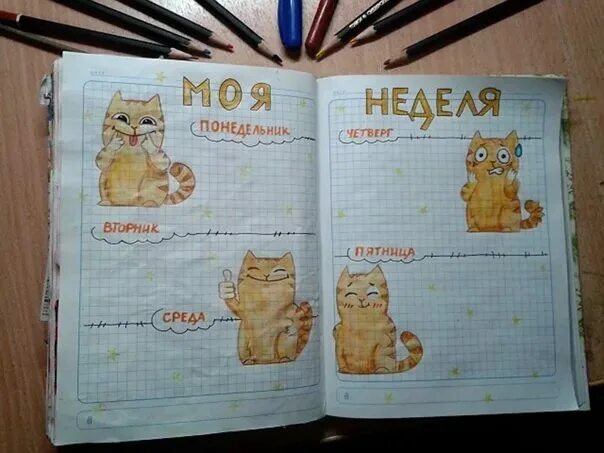 МОЯ
ПОНЕДЕЛЬНИК
ВТОРНИК
СРЕДА
НЕДЕЛЯ
ЧЕТВЕРГ
ПЯТНИЦА